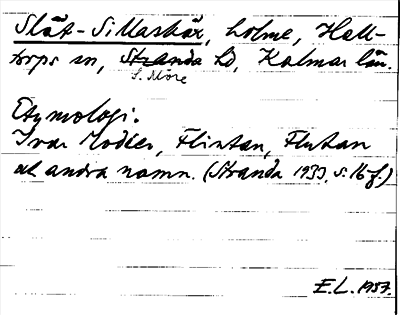 Slät-Sillaskär, holme, Hall-
torps sn, Stranda hd, Kalmar län.
S. Möre
Etymologi.
Ivar Modéer, Flintan, Flutan
och andra namn. (Stranda 1933, s. 16 f.)
E.L. 1957.